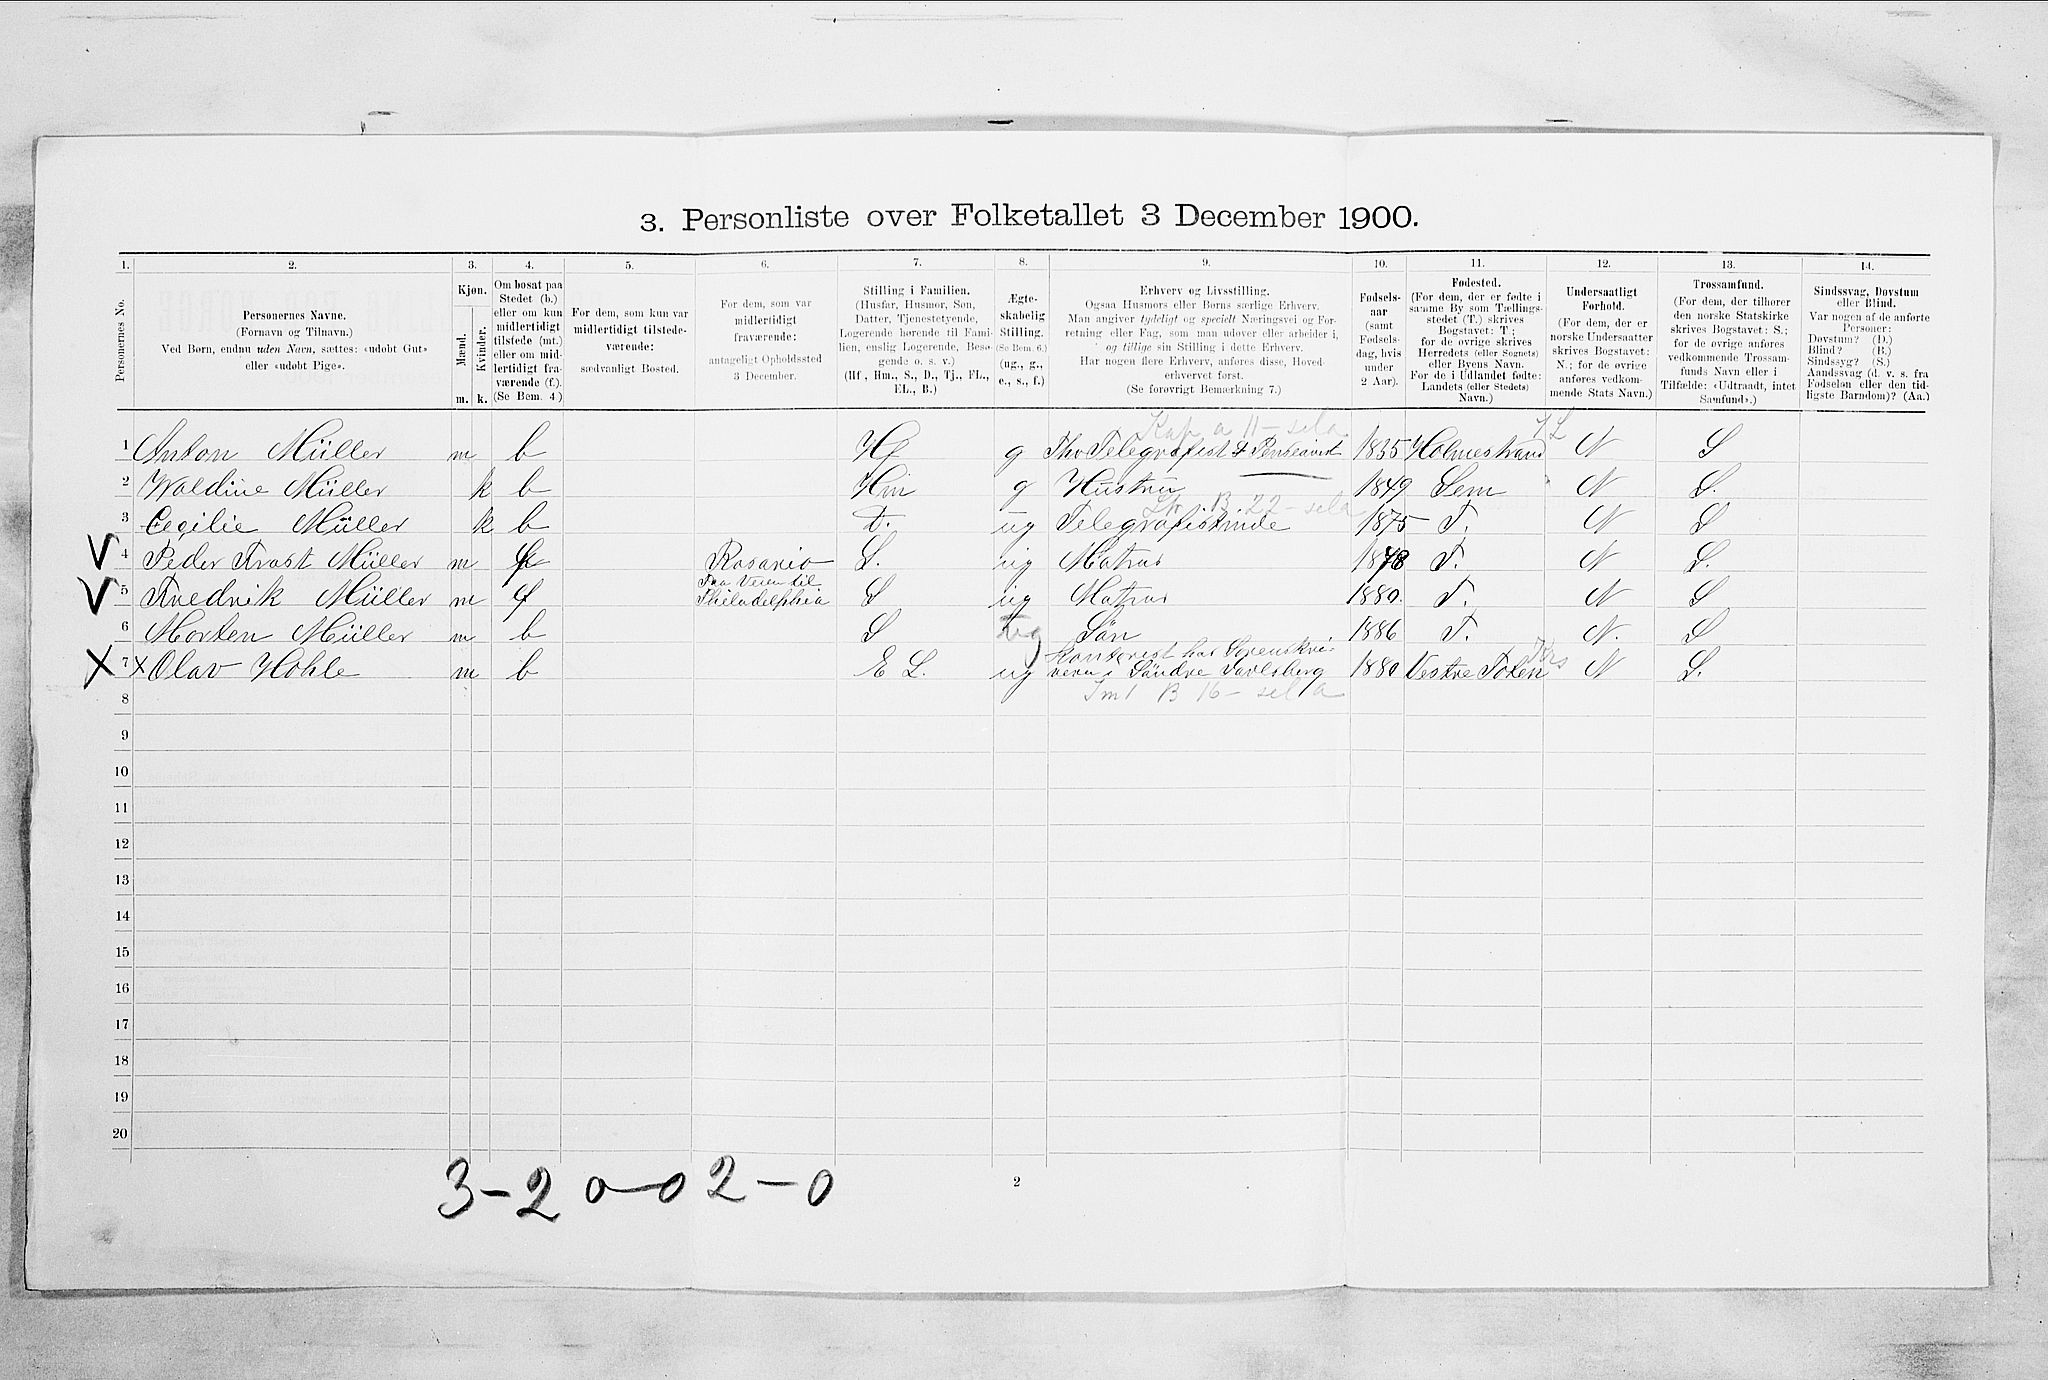 3. Personliste over Folketallet 3 December 1900.
1. 2. 3. 4. 5. 6. 7. 8. 9. 10. 11. 12. 13. 14.
Personernes No.
Personernes Navne.
(Fornavn og Tilnavn.)
Ved Børn, endnu uden Navn, sættes: «udøbt Gut»
eller «udøbt Pige».
Kjøn.
Mænd.
Kvinder.
m. k.
Om bosat paa
Stedet (b.)
eller om kun
midlertidigt
tilstede (mt.)
eller om mid-
lertidigt fra-
værende (f.).
(Se Bem. 4.)
For dem, som kun var
midlertidigt tilstede-
værende:
sædvanligt Bosted.
For dem, som var
midlertidigt
fraværende:
antageligt Opholdssted
3 December.
Stilling i Familien.
(Husfar, Husmor, Søn,
Datter, Tjenestetyende,
Logerende hørende til Fami-
lien, enslig Logerende, Besø-
gende o. s. v.)
(Hf., Hm., S., D., Tj., FL.,
EL., B.)
Ægte-
skabelig
Stilling.
(Se Bem. 6.)
(ug., g.,
e., s., f.)
Erhverv og Livsstilling.
Ogsaa Husmors eller Børns særlige Erhverv.
Man angiver tydeligt og specielt Næringsvei og For-
retning eller Fag, som man udøver eller arbeider i,
og tillige sin Stilling i dette Erhverv.
Har nogen flere Erhverv, anføres disse, Hoved-
erhvervet først.
(Se forøvrigt Bemærkning 7.)
Fødsels-
aar
(samt
Fødsels-
dag, hvis
under
2 Aar).
Fødested.
(For dem, der er fødte i
samme By som Tællings-
stedet (T.) skrives
Bogstavet: T.;
for de øvrige skrives
Herredets (eller Sognets)
eller Byens Navn.
For de i Udlandet fødte:
Landets (eller Stedets)
Navn.)
Undersaatligt
Forhold.
(For dem, der er
norske Undersaatter
skrives Bogstavet:
N.; for de øvrige
anføres vedkom-
mende Stats Navn.)
Trossamfund.
(For dem, der tilhører
den norske Statskirke
skrives Bogstavet: S.;
for de øvrige anføres
vedkommende Trossam-
funds Navn eller i
Tilfælde: «Udtraadt, intet
Samfund».)
Sindssvag, Døvstum
eller Blind.
Var nogen af de anførte
Personer:
Døvstum? (D.)
Blind? (B.)
Sindssyg? (S.)
Aandssvag (d. v. s. fra
Fødselen eller den tid-
ligste Barndom)? (Aa.)
Kap a 11 - sela
1 Anton Müller m b Hf g Telegrafist 1835 Holmestrand N S
2 Waldine Müller k b Hm g Hustru 1849 Sem N S.
B 22 - sela
3 Cecilie Müller k b D. ug Telegrafistinde 1875 T. N S
V 4 Peder Trost Müller m f Rosario S. ug Matros 1878 T. N S.
Paa Veien til
V 5 Fredrik Müller m f Philadelphia S ug Matros 1880. T. N S
6 Morten Müller m b S ug Sön 1886 T. N. S
Kontorist hos Sorenskri-
X 7 x Olav Hohle m b E L. ug veren i Söndre Jarlsberg 1880 Vestre Toten N S.
Im 1 B 16 - sela
8
9
10
11
12
13
14
15
16
17
18
19
20
3-2 0-0 2-0
2